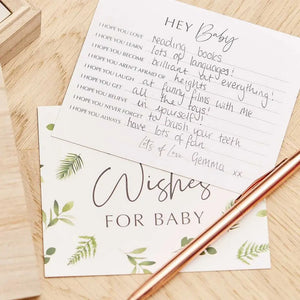 HEY Baby
I HOPE YOU LOVE reading books
I HOPE YOU LEARN lots of languages!
I HOPE YOU BECOME brilliant but everything!
I HOPE YOU AREN'T AFRAID OF heights
I HOPE YOU LAUGH at funny films with me
I HOPE YOU GET all the toys!
I HOPE YOU BELIEVE in yourself!
I HOPE YOU NEVER FORGET to brush your teeth
I HOPE YOU ALWAYS have lots of fun
Lots of Love Gemma xx
Wishes
FOR BABY